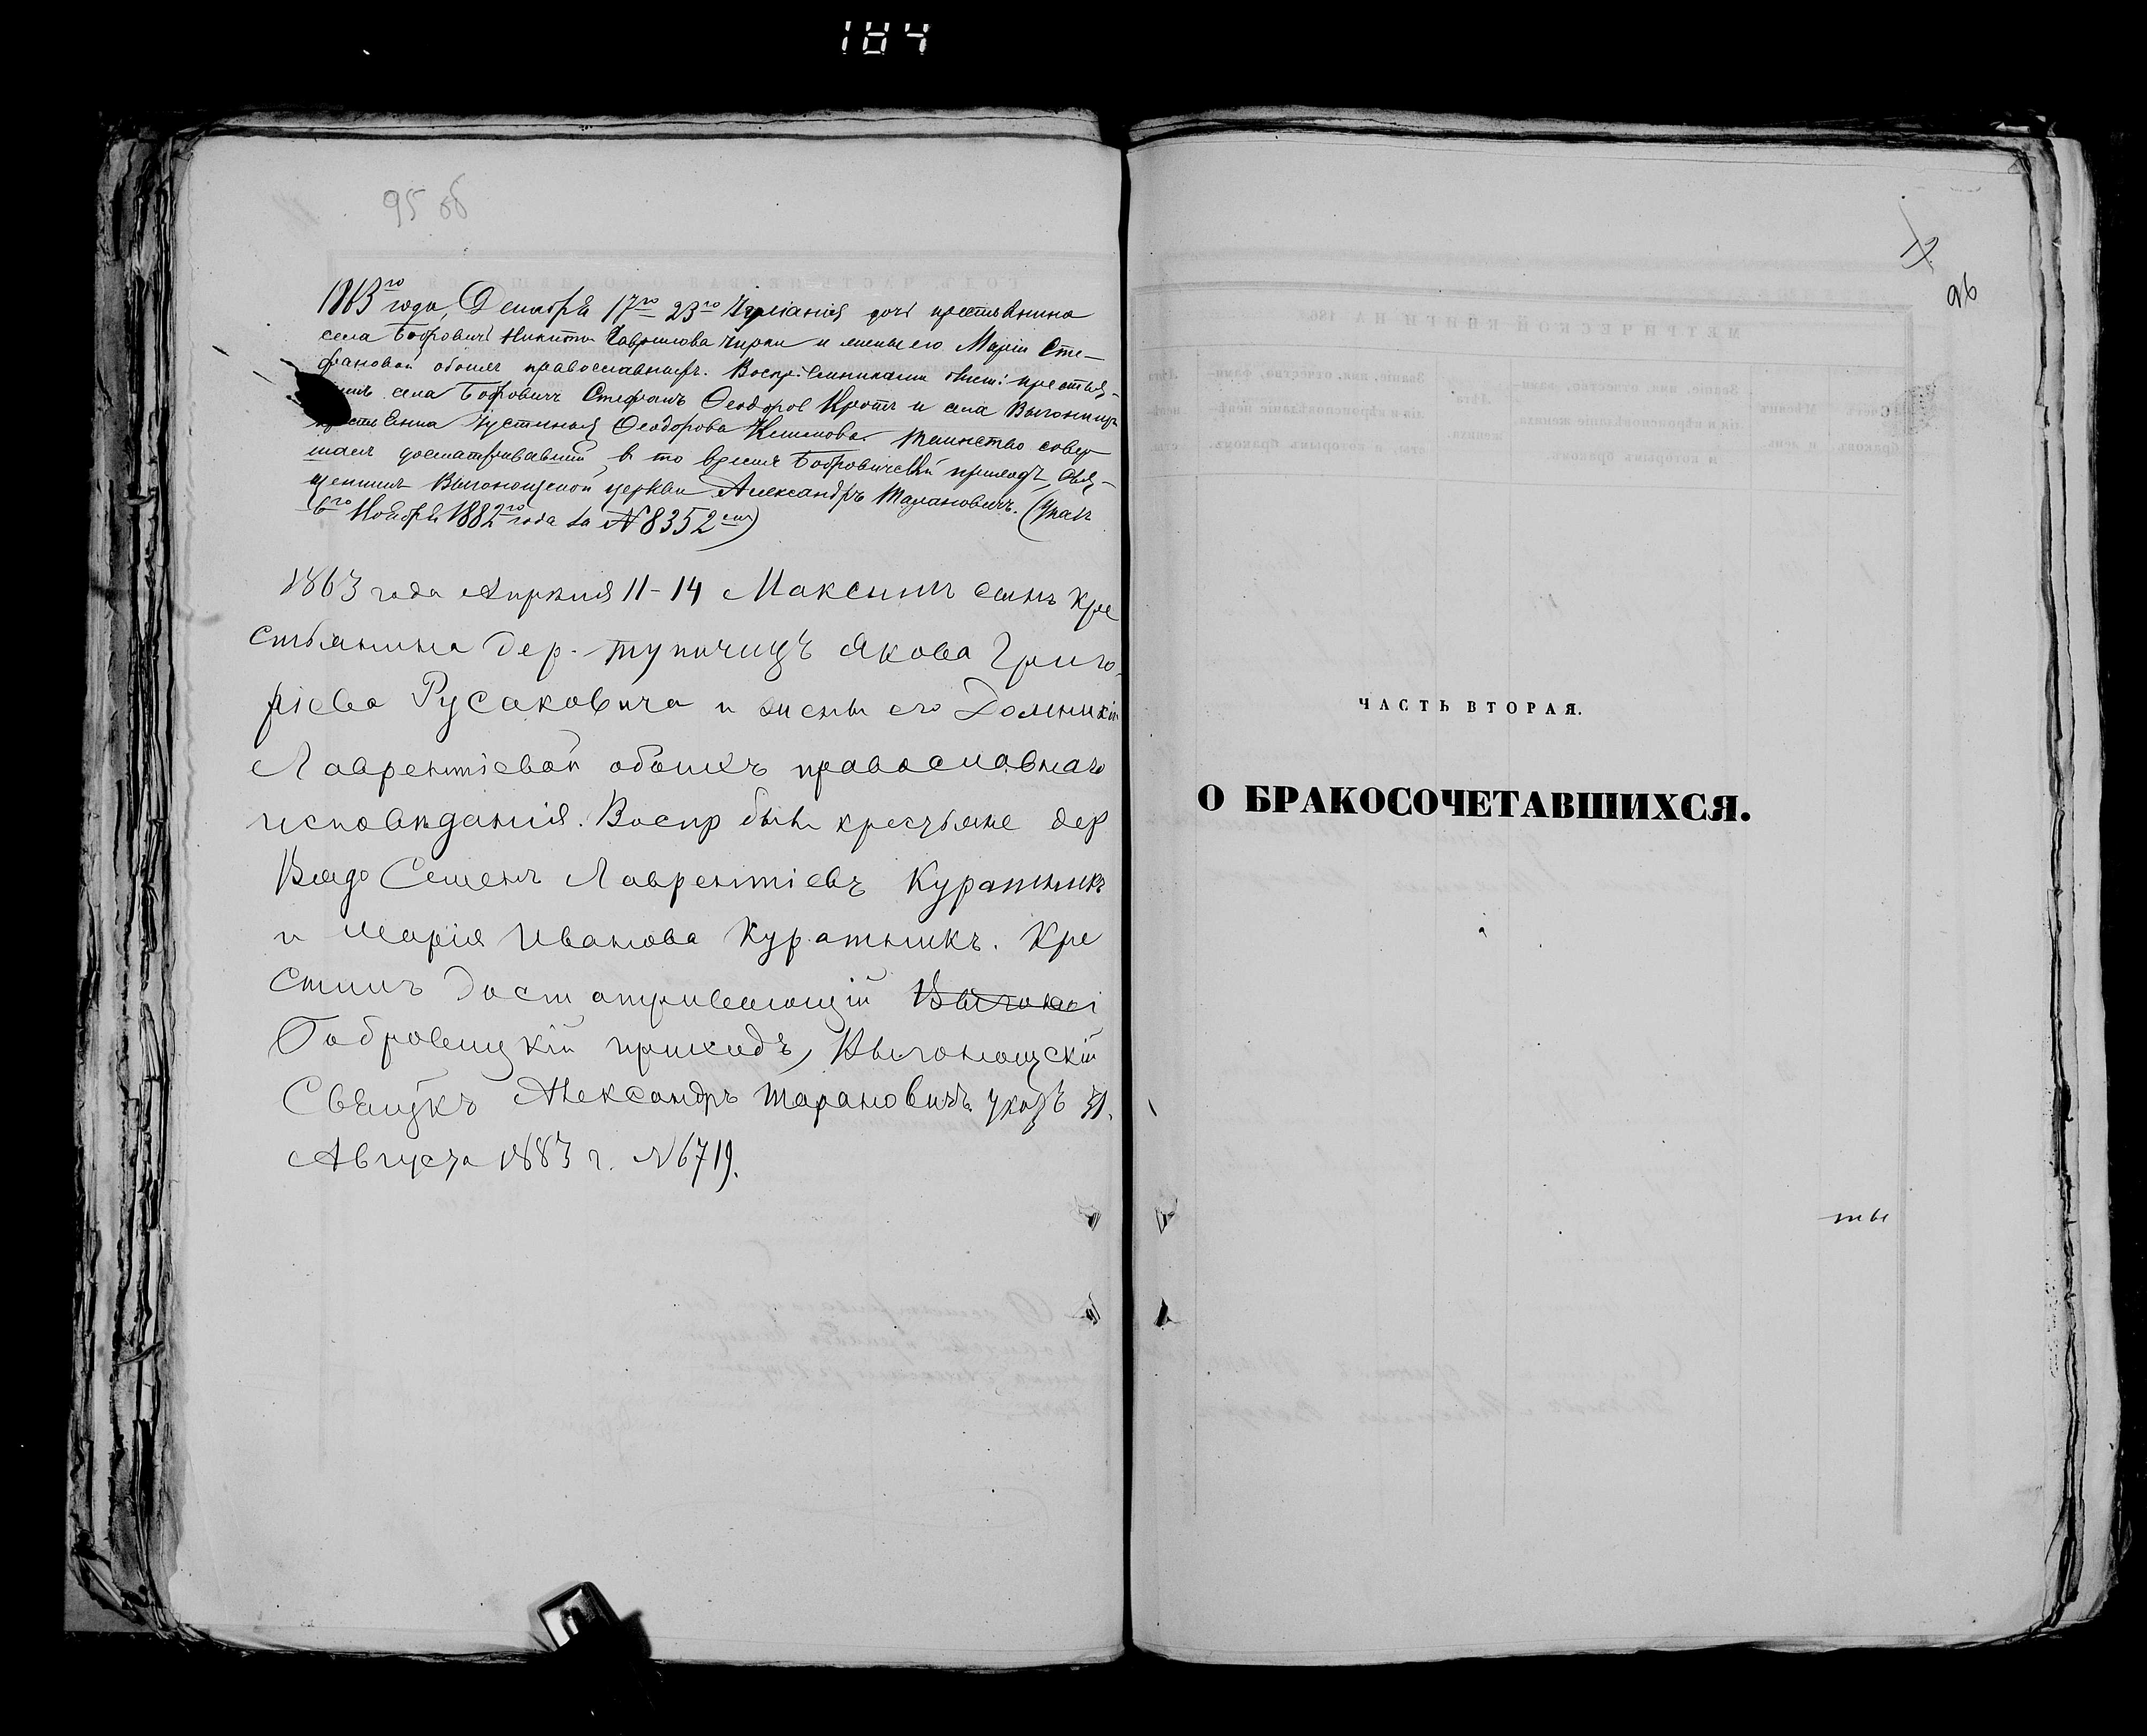 184
95 об
1863го года, Декабря 17го 23го Иуліанія дочь крестьянина
села Бобровичъ Никиты Гаврилова Чирки и жены его Маріи Сте-
фановой обоихъ православныхъ. Воспріемниками были: крестья-
села Бобровичъ Стефанъ Ѳеодоровъ Кротъ и села Выгонощъ
Иустинія Ѳеодорова Таинство совер
шалъ досматривавшій, въ то время Бобровичскій приходъ, Свя-
щенникъ Выгонощской церкви Александръ Тарановичъ. (Указъ
6го Ноября 1882го года за N 8352мъ)
1863 года Апрѣля 11-14 Максимъ сынъ кре
стьянина дер. Тупичицъ Якова Григо
ріева Русаковича и жены его Домникіи
Лаврентіевой обоихъ православнаго
исповѣданія. Воспр были крестьяне дер
Вядо Семенъ Лаврентіевъ Куратникъ
и Марія Иванова Куратникъ. Кре
стилъ досматривающій
Бобровицкій приходъ, Выгонощскій
Свящ̆къ Александръ Тарановичъ указъ 31.
Августа 1883 г. N 6719.
96
ЧАСТЬ ВТОРАЯ.
О БРАКОСОЧЕТАВШИХСЯ.
ты